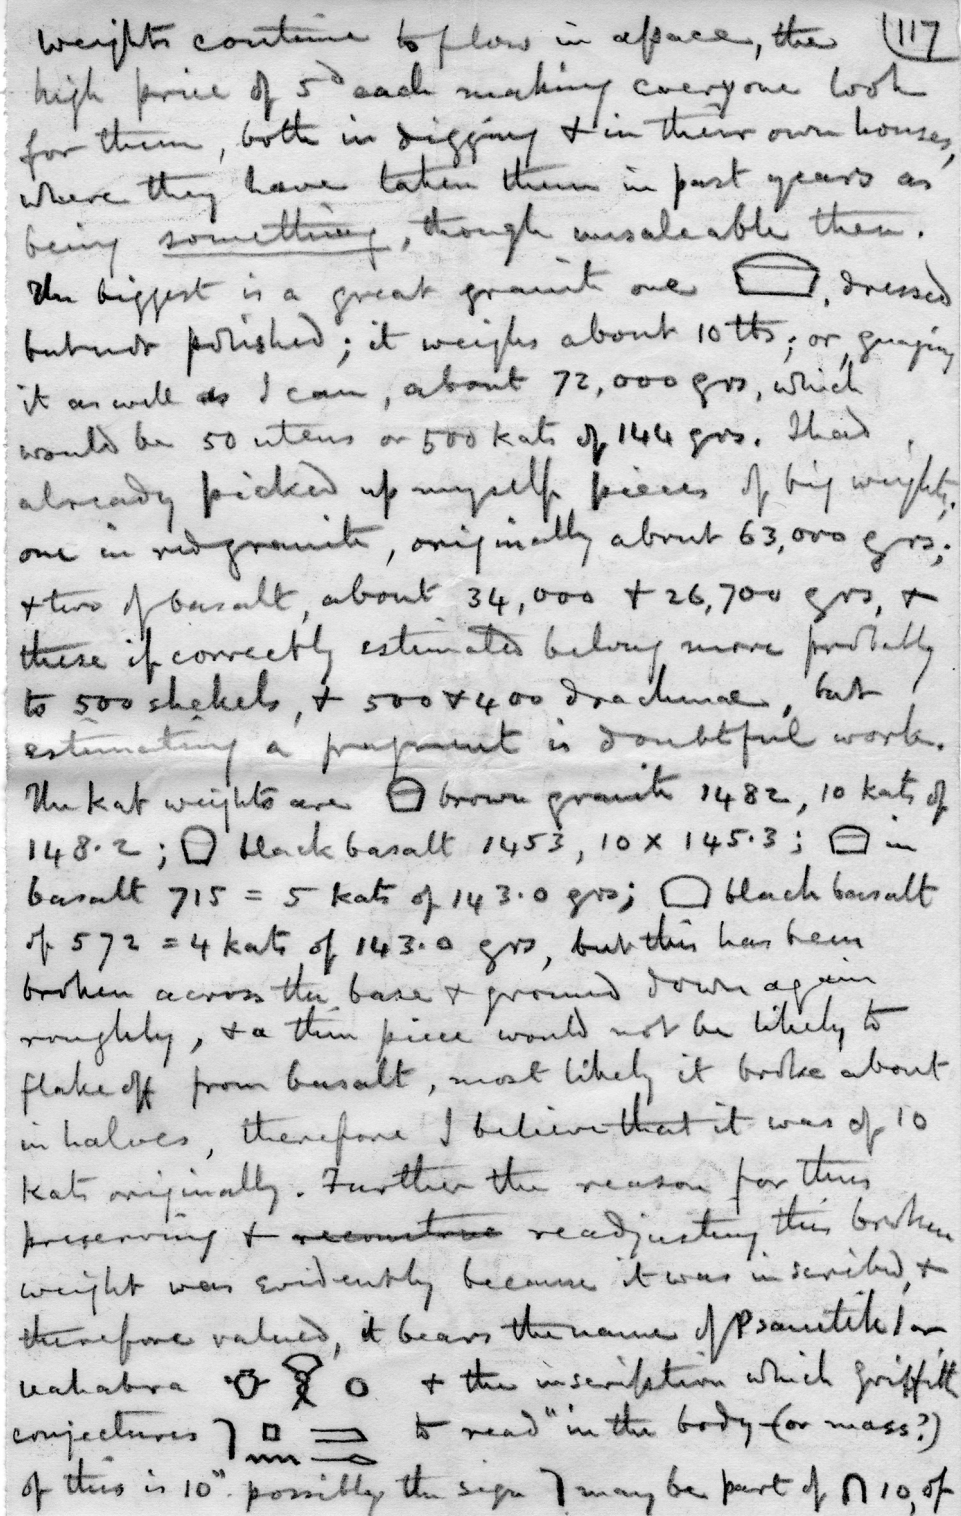 weights continue to flow in apace, the 117
high price of 5d each making everyone look
for them, both in digging & in their own houses,
where they have taken them in past years as
being something, though unsaleable then.
The biggest is a great granite one , dressed
but not polished; it weighs about 10 lbs; or, guaging
it as well as I can, about 72,000 grs, which
would be 50 utens or 500 kats of 144 grs. I had
already picked up myself pieces of big weights;
one in red granite, originally about 63,000 grs;
& two of basalt, about 34,000 & 26,700 grs, &
these if correctly estimated belong more probably
to 500 shekels, & 500 & 400 drachmae, but
estimating a fragment is doubtful work.
The kat weights are brown granite 1482, 10 kats of
148.2; black basalt 1453, 10 x 145.3; in
basalt 715 = 5 kats of 143.0 grs; black basalt
of 572 = 4 kats of 143.0 grs, but this has been
broken across the base & ground down again
roughly, & a thin piece would not be likely to
flake off from basalt, most likely it broke about
in halves, therefore I believe that it was of 10
kats originally. Further the reason for thus
preserving & reconstruc readjusting this broken
weight was evidently because it was inscribed, &
therefore valued, it bears the name of Psamtik I or
uahabra & the inscription which Griffith
conjectures to read "in the body (or mass?)
of this is 10". possibly the sign may be part of ∩ 10, of